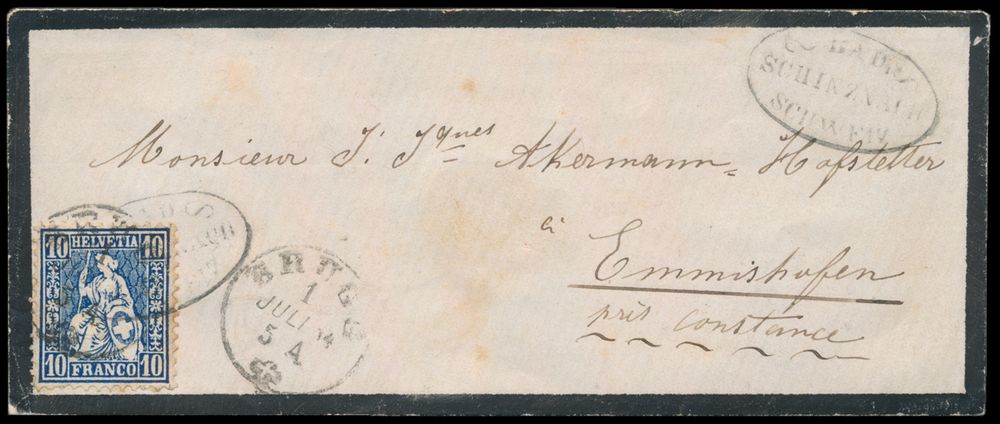 BAD
SCHINZNACH
SCHWEIZ
Monsieur J. Jques Akermann=Hofstetter
à
Emmishofen
près constance
10 HELVETIA 10
10 FRANCO 10
BRUGG
1
JULI
5 A